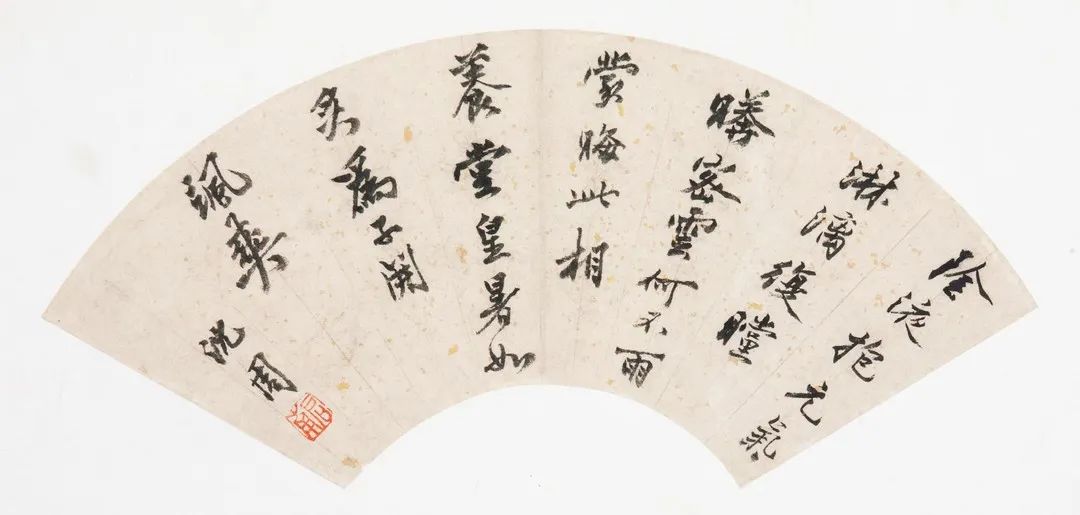 陰液抱元氣
淋漓復曈
密雲何不雨
蒙晦此相
養堂皇暑如
炙為子開
颯爽
沈周